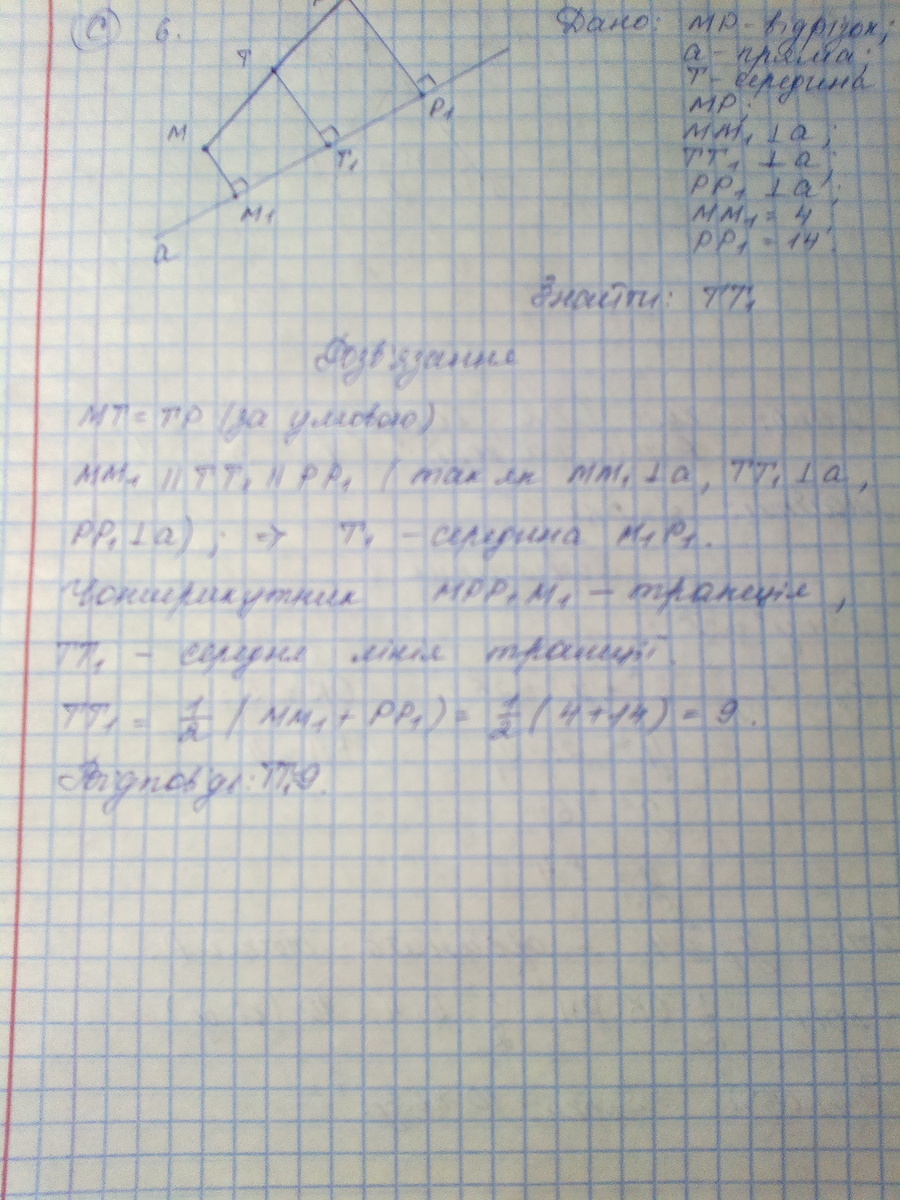 С 6.
Дано: MP - відрізок;
a - пряма;
T - середина
MP;
MM₁ ⊥ a;
TT₁ ⊥ a;
PP₁ ⊥ a;
MM₁ = 4
PP₁ = 14.
T
M
P₁
T₁
M₁
a
Знайти: TT₁
Розв'язання
MT = TP (за умовою)
MM₁ || TT₁ || PP₁ (так як MM₁ ⊥ a, TT₁ ⊥ a,
PP₁ ⊥ a); => T₁ - середина M₁P₁.
Чотирикутник MPP₁M₁ - трапеція,
TT₁ - середня лінія трапеції.
TT₁ = 1/2 (MM₁ + PP₁) = 1/2 (4+14) = 9.
Відповідь: